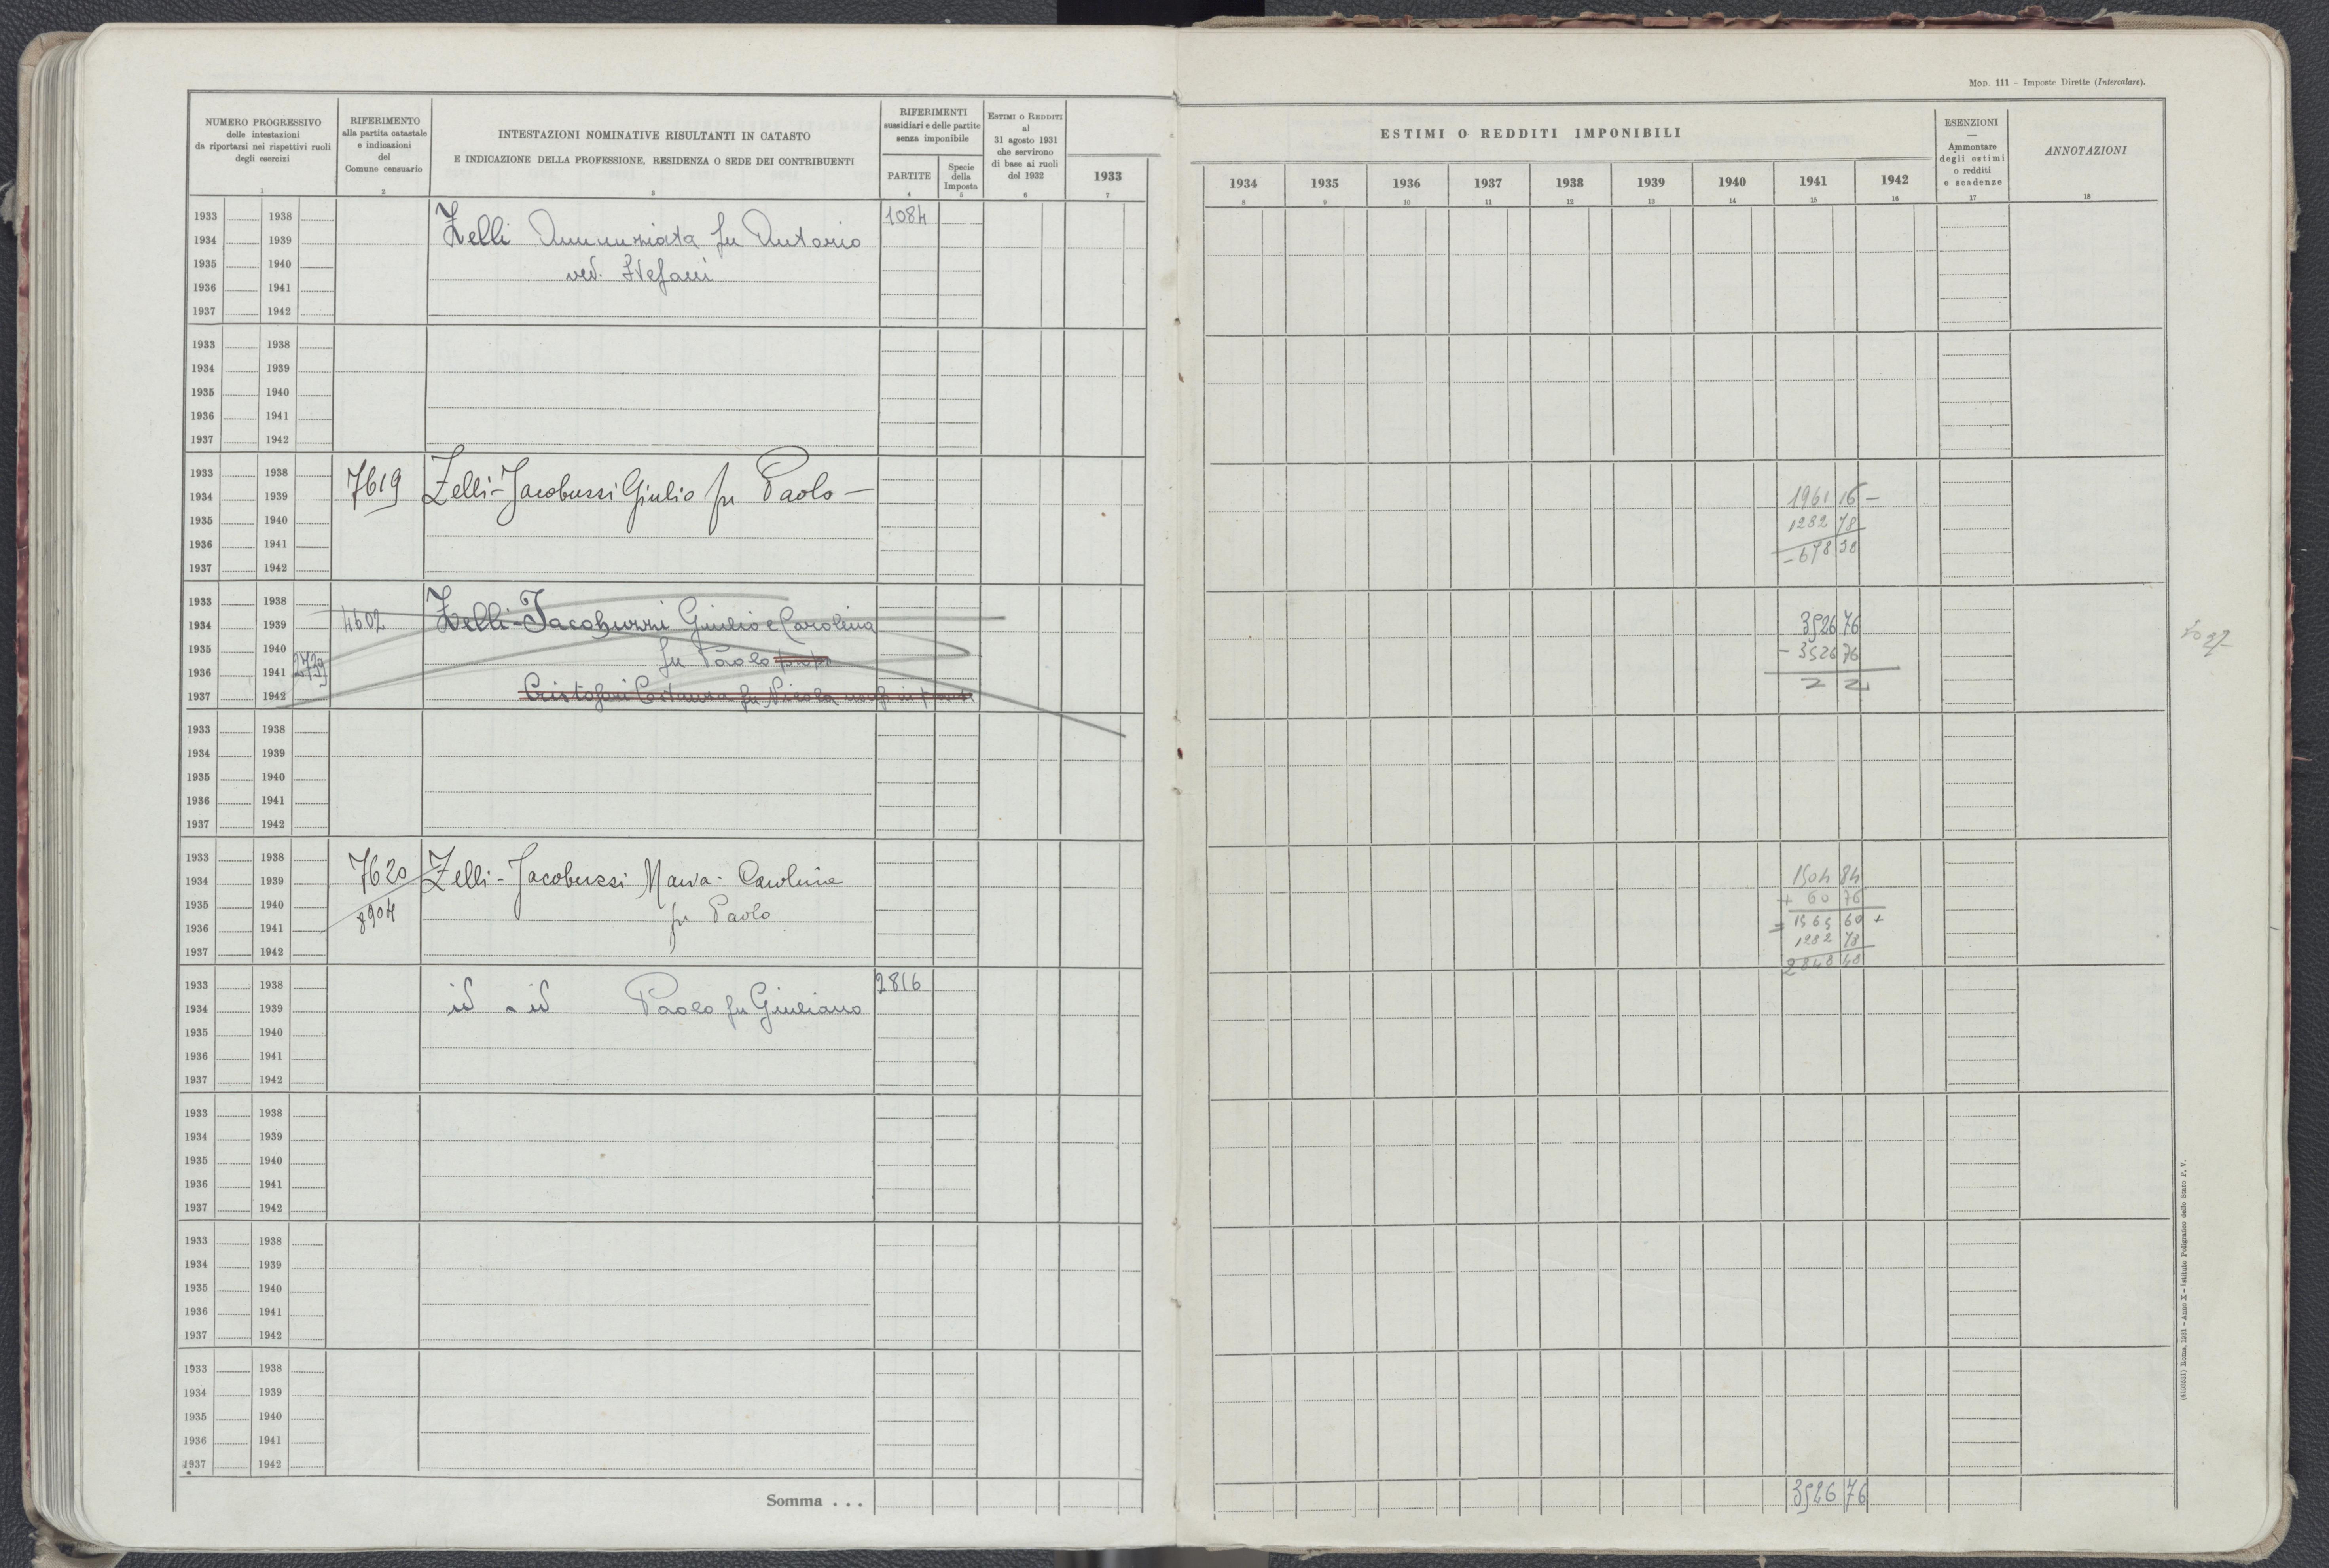 Mod. 111 - Imposte Dirette (Intercalare).
NUMERO PROGRESSIVO
delle intestazioni
da riportarsi nei rispettivi ruoli
degli esercizi
1
RIFERIMENTO
alla partita catastale
e indicazioni
del
Comune censuario
2
INTESTAZIONI NOMINATIVE RISULTANTI IN CATASTO
E INDICAZIONE DELLA PROFESSIONE, RESIDENZA O SEDE DEI CONTRIBUENTI
3
RIFERIMENTI
sussidiari e delle partite
senza imponibile
PARTITE
4
Specie
della
Imposta
5
Estimi o Redditi
al
31 agosto 1931
che servirono
di base ai ruoli
del 1932
6
ESTIMI O REDDITI IMPONIBILI
1933 1934 1935 1936 1937 1938 1939 1940 1941 1942
7 8 9 10 11 12 13 14 15 16
ESENZIONI
—
Ammontare
degli estimi
o redditi
e scadenze
17
ANNOTAZIONI
18
1933 1938 1084
1934 1939 Zelli Annunziata fu Antonio
1935 1940 ved. Stefani
1936 1941
1937 1942
1933 1938
1934 1939
1935 1940
1936 1941
1937 1942
1933 1938 7619 Zelli-Jacobuzzi Giulio fu Paolo —
1934 1939 1961 16 —
1935 1940 1282 78
1936 1941 - 678 38
1937 1942
1933 1938
1934 1939 4602 Zelli-Jacobuzzi Giulio e Carolina 3526 76
1935 1940 fu Paolo - 3526 76
1936 1941 2739
1937 1942 Cristofari Costanza fu Nicola
1933 1938
1934 1939
1935 1940
1936 1941
1937 1942
1933 1938 7620 Zelli-Jacobuzzi Maria-Carolina
1934 1939 1504 84
1935 1940 8904 fu Paolo + 60 76
1936 1941 = 1565 60 +
1937 1942 1282 78
2848 40
1933 1938 2816
1934 1939 id - id Paolo fu Giuliano
1935 1940
1936 1941
1937 1942
1933 1938
1934 1939
1935 1940
1936 1941
1937 1942
1933 1938
1934 1939
1935 1940
1936 1941
1937 1942
1933 1938
1934 1939
1935 1940
1936 1941
1937 1942
Somma . . . 3526 76
(4100551) Roma, 1931 - Anno X - Istituto Poligrafico dello Stato P. V.